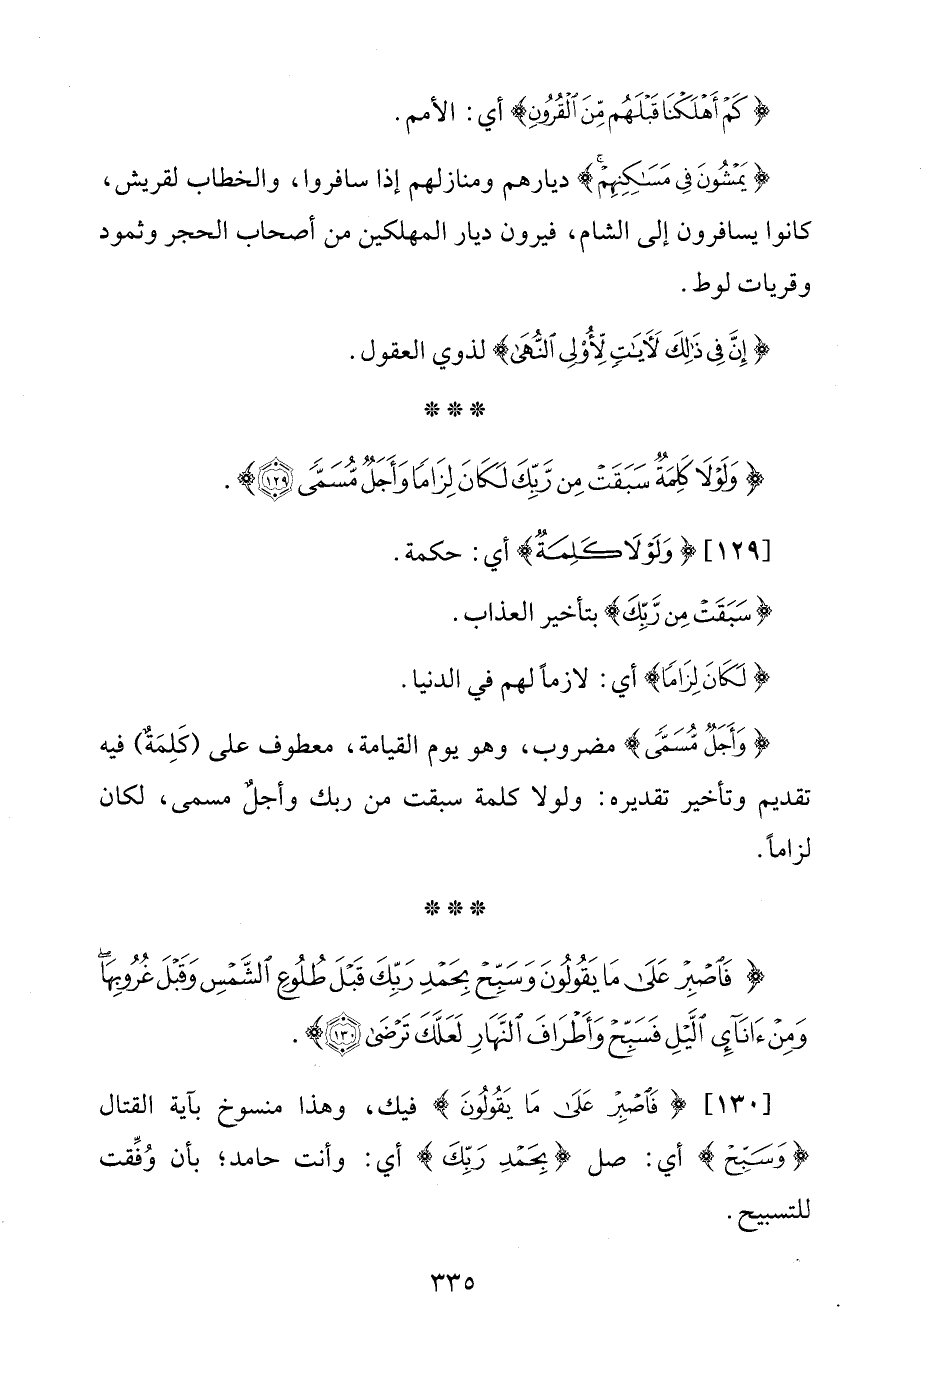 ﴿كَمْ أَهْلَكْنَا قَبْلَهُم مِّنَ ٱلْقُرُونِ﴾ أي: الأمم.
﴿يَمْشُونَ فِى مَسَـٰكِنِهِمْۚ﴾ ديارهم ومنازلهم إذا سافروا، والخطاب لقريش،
كانوا يسافرون إلى الشام، فيرون ديار المهلكين من أصحاب الحجر وثمود
وقريات لوط.
﴿إِنَّ فِى ذَٰلِكَ لَـَٔايَـٰتٍ لِّأُو۟لِى ٱلنُّهَىٰ﴾ لذوي العقول.
* * *
﴿وَلَوْلَا كَلِمَةٌ سَبَقَتْ مِن رَّبِّكَ لَكَانَ لِزَامًا وَأَجَلٌ مُّسَمًّى ١٢٩﴾.
[١٢٩] ﴿وَلَوْلَا كَلِمَةٌ﴾ أي: حكمة.
﴿سَبَقَتْ مِن رَّبِّكَ﴾ بتأخير العذاب.
﴿لَكَانَ لِزَامًا﴾ أي: لازماً لهم في الدنيا.
﴿وَأَجَلٌ مُّسَمًّى﴾ مضروب، وهو يوم القيامة، معطوف على (كَلِمَةٌ) فيه
تقديم وتأخير تقديره: ولولا كلمة سبقت من ربك وأجلٌ مسمى، لكان
لزاماً.
* * *
﴿فَٱصْبِرْ عَلَىٰ مَا يَقُولُونَ وَسَبِّحْ بِحَمْدِ رَبِّكَ قَبْلَ طُلُوعِ ٱلشَّمْسِ وَقَبْلَ غُرُوبِهَاۖ
وَمِنْ ءَانَآئِ ٱلَّيْلِ فَسَبِّحْ وَأَطْرَافَ ٱلنَّهَارِ لَعَلَّكَ تَرْضَىٰ ١٣٠﴾.
[١٣٠] ﴿فَٱصْبِرْ عَلَىٰ مَا يَقُولُونَ﴾ فيك، وهذا منسوخ بآية القتال
﴿وَسَبِّحْ﴾ أي: صل ﴿بِحَمْدِ رَبِّكَ﴾ أي: وأنت حامد؛ بأن وُفِّقت
للتسبيح.
٣٣٥